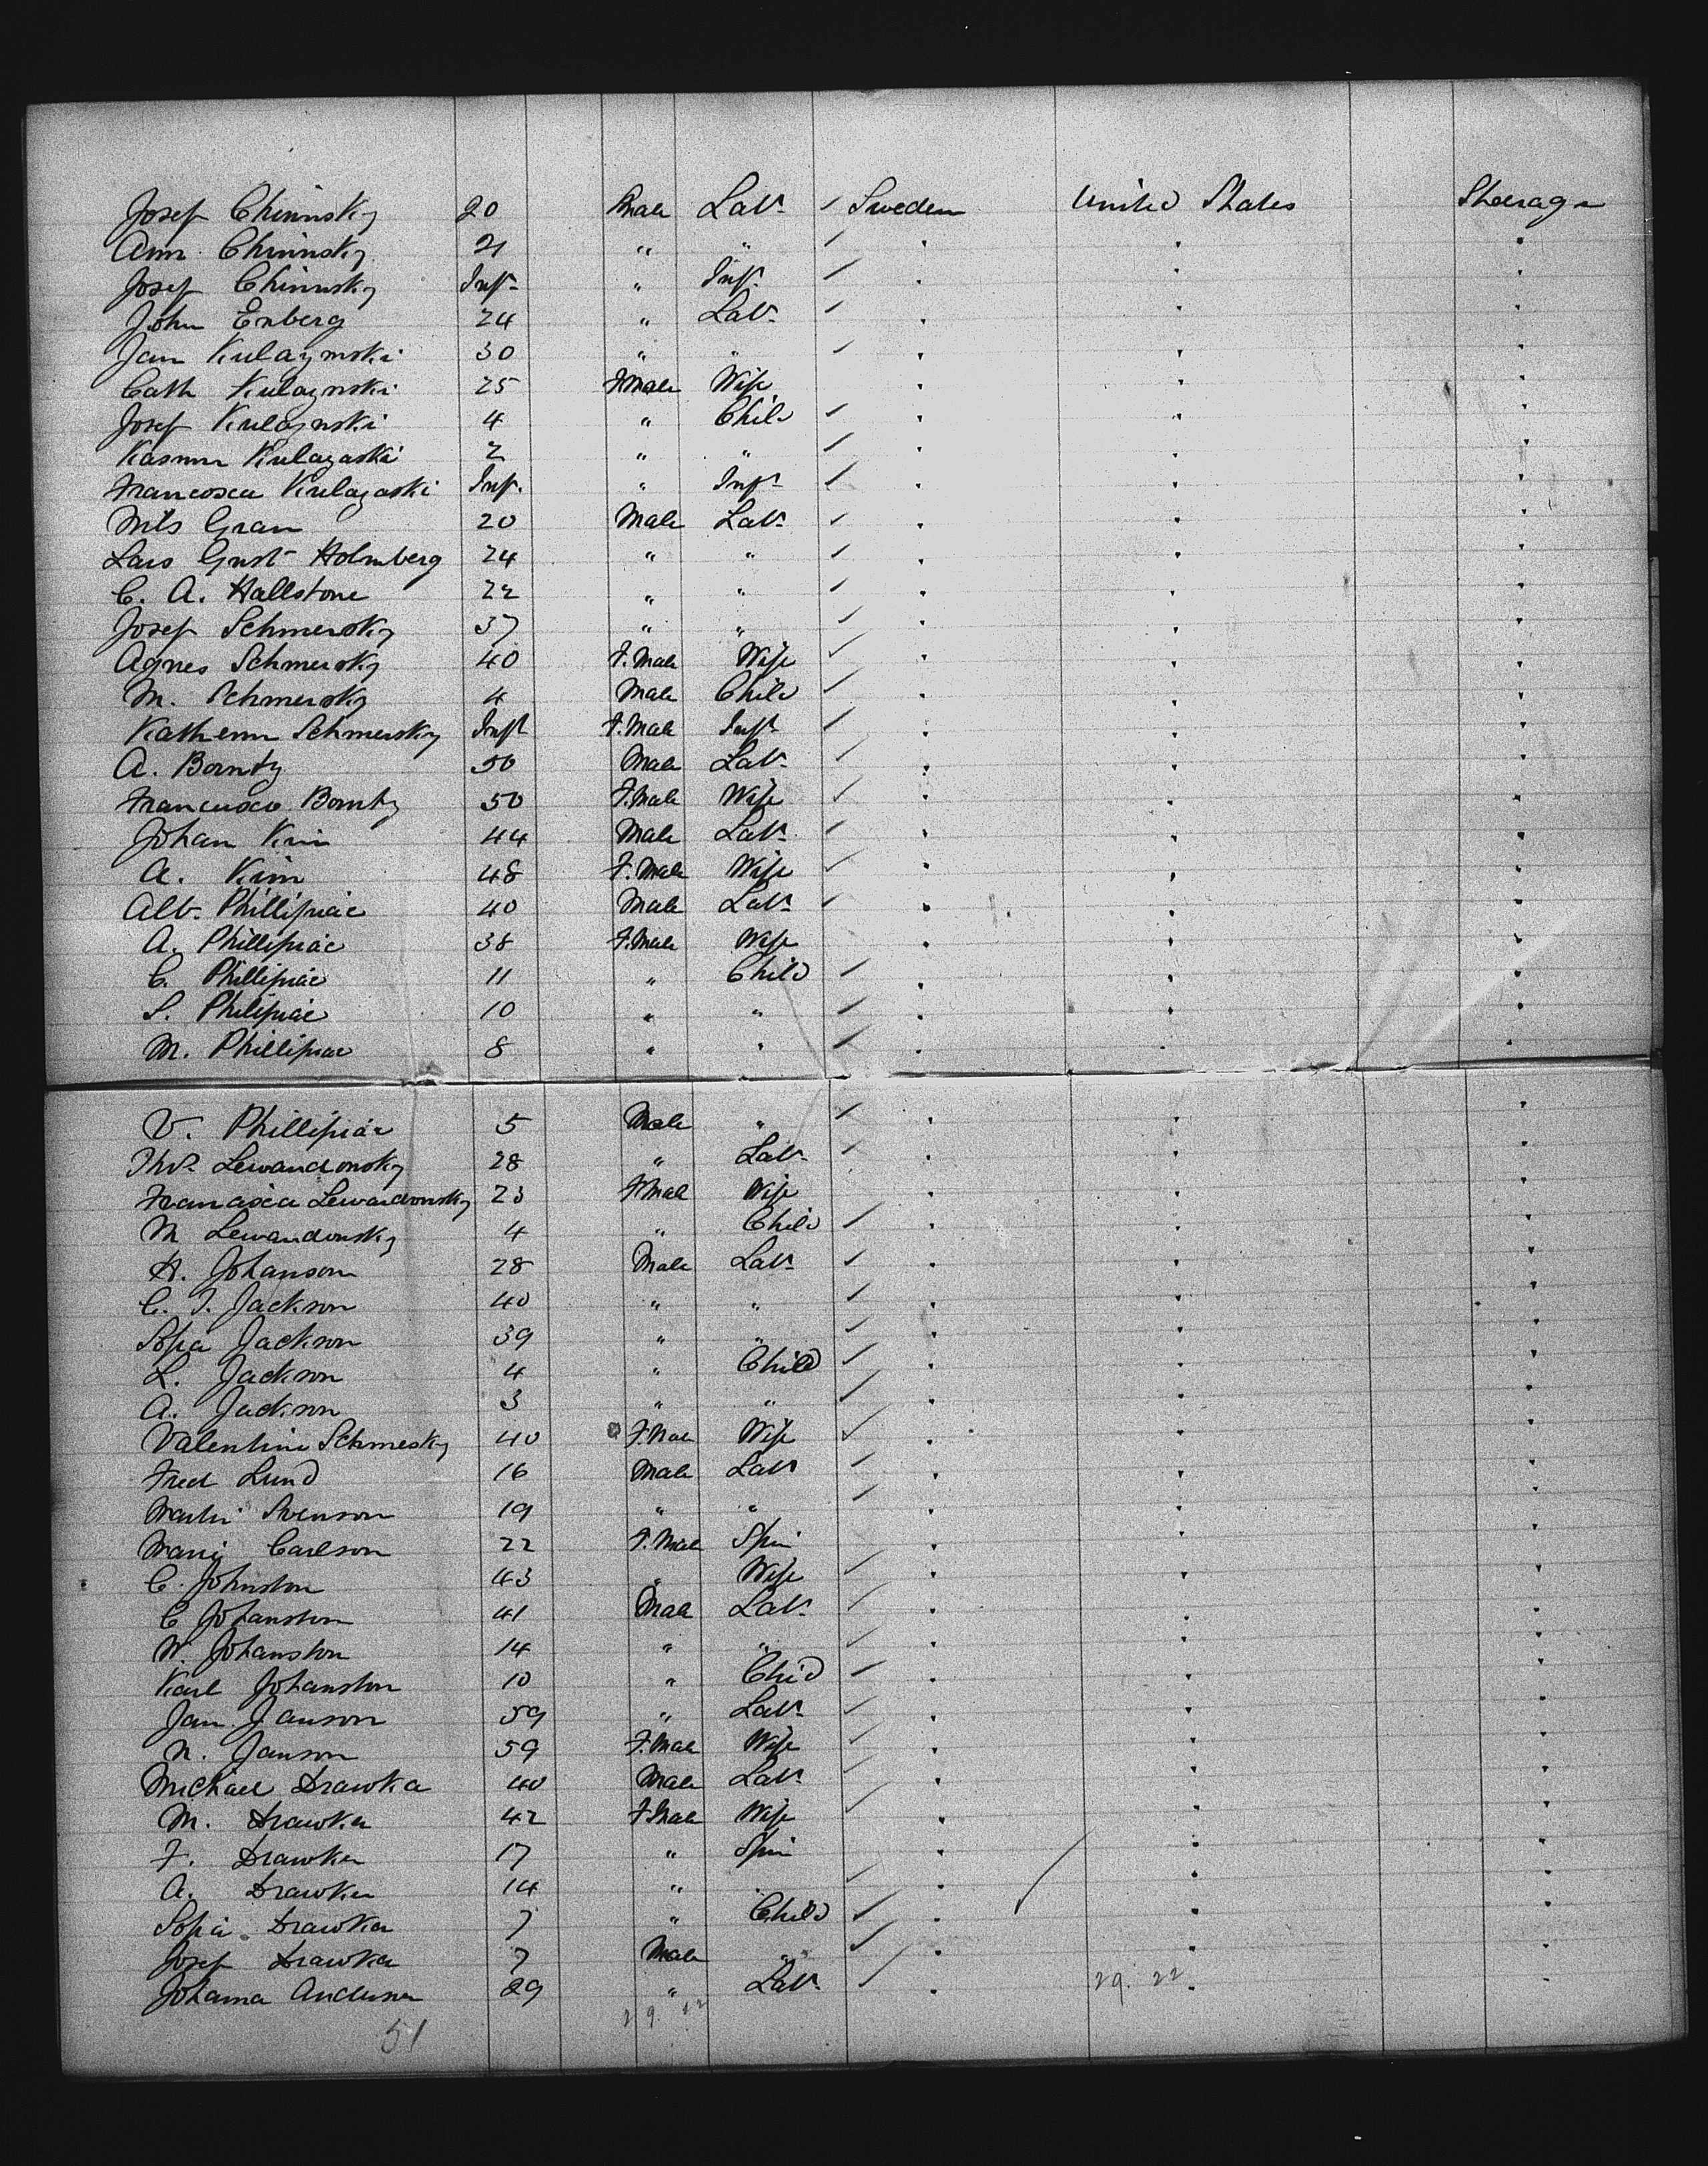 Josef Chininsky 20 Male Lab. ✓ Sweden United States Steerage
Ann Chininsky 21 " " ✓ " " "
Josef Chininsky Inft. " Inft. ✓ " " "
John Enberg 24 " Lab. ✓ " " "
Jan Kulazmski 30 " " ✓ " " "
Cath Kulaznski 25 F.Male Wife " " "
Josef Kulaznski 4 " Child ✓ " " "
Kasmir Kulazaski 2 " " ✓ " " "
Francosca Kulazaski Inft. " Inft. ✓ " " "
Nils Gran 20 Male Lab. ✓ " " "
Lars Gust Holmberg 24 " " ✓ " " "
C. A. Hallstone 22 " " ✓ " " "
Josef Schmersky 37 " " ✓ " " "
Agnes Schmersky 40 F.Male Wife ✓ " " "
M. Schmersky 4 Male Child ✓ " " "
Kathenn Schmersky Inft F.Male Inft. ✓ " " "
A. Bornty 50 Male Lab. ✓ " " "
Francusca Bornty 50 F.Male Wife ✓ " " "
Johan Krin 44 Male Lab. ✓ " " "
A. Krin 48 F.Male Wife ✓ " " "
Alb. Phillipiac 40 Male Lab. ✓ " " "
A. Phillipiac 38 F.Male Wife " " "
C. Phillipiac 11 " Child ✓ " " "
S. Philipiac 10 " " ✓ " " "
M. Phillipiac 8 " " ✓ " " "
V. Phillipiac 5 Male " ✓ " " "
Thos. Lewandonsky 28 " Lab. ✓ " " "
Francisca Lewandonsky 23 F.Male Wife " " "
M Lewandonsky 4 " Child ✓ " " "
H. Johanson 28 Male Lab. ✓ " " "
C. J. Jackson 40 " " ✓ " " "
Sofia Jackson 39 " " ✓ " " "
L. Jackson 4 " Child ✓ " " "
A. Jackson 3 " " ✓ " " "
Valentine Schmesky 40 F.Male Wife ✓ " " "
Fred Lund 16 Male Lab ✓ " " "
Martin Svenson 19 " " ✓ " " "
Maria Carlson 22 F.Male Spin " " "
C. Johnston 43 " Wife ✓ " " "
C Johanston 41 Male Lab. ✓ " " "
W. Johanston 14 " " ✓ " " "
Karl Johanston 10 " Chid ✓ " " "
Jan Janson 59 " Lab. ✓ " " "
N. Janson 59 F.Male Wife ✓ " " "
Michael Drawka 40 Male Lab. ✓ " " "
M. Drawka 42 F.Male Wife ✓ " " "
F. Drawka 17 " Spin " " "
A. Drawka 14 " " ✓ " " "
Sofia Drawka 7 " Child ✓ " ✓ " "
Josef Drawka 7 Male " ✓ " " "
Johanna Anderson 29 " Lab. ✓ " 29. 22 " "
51 29. 22